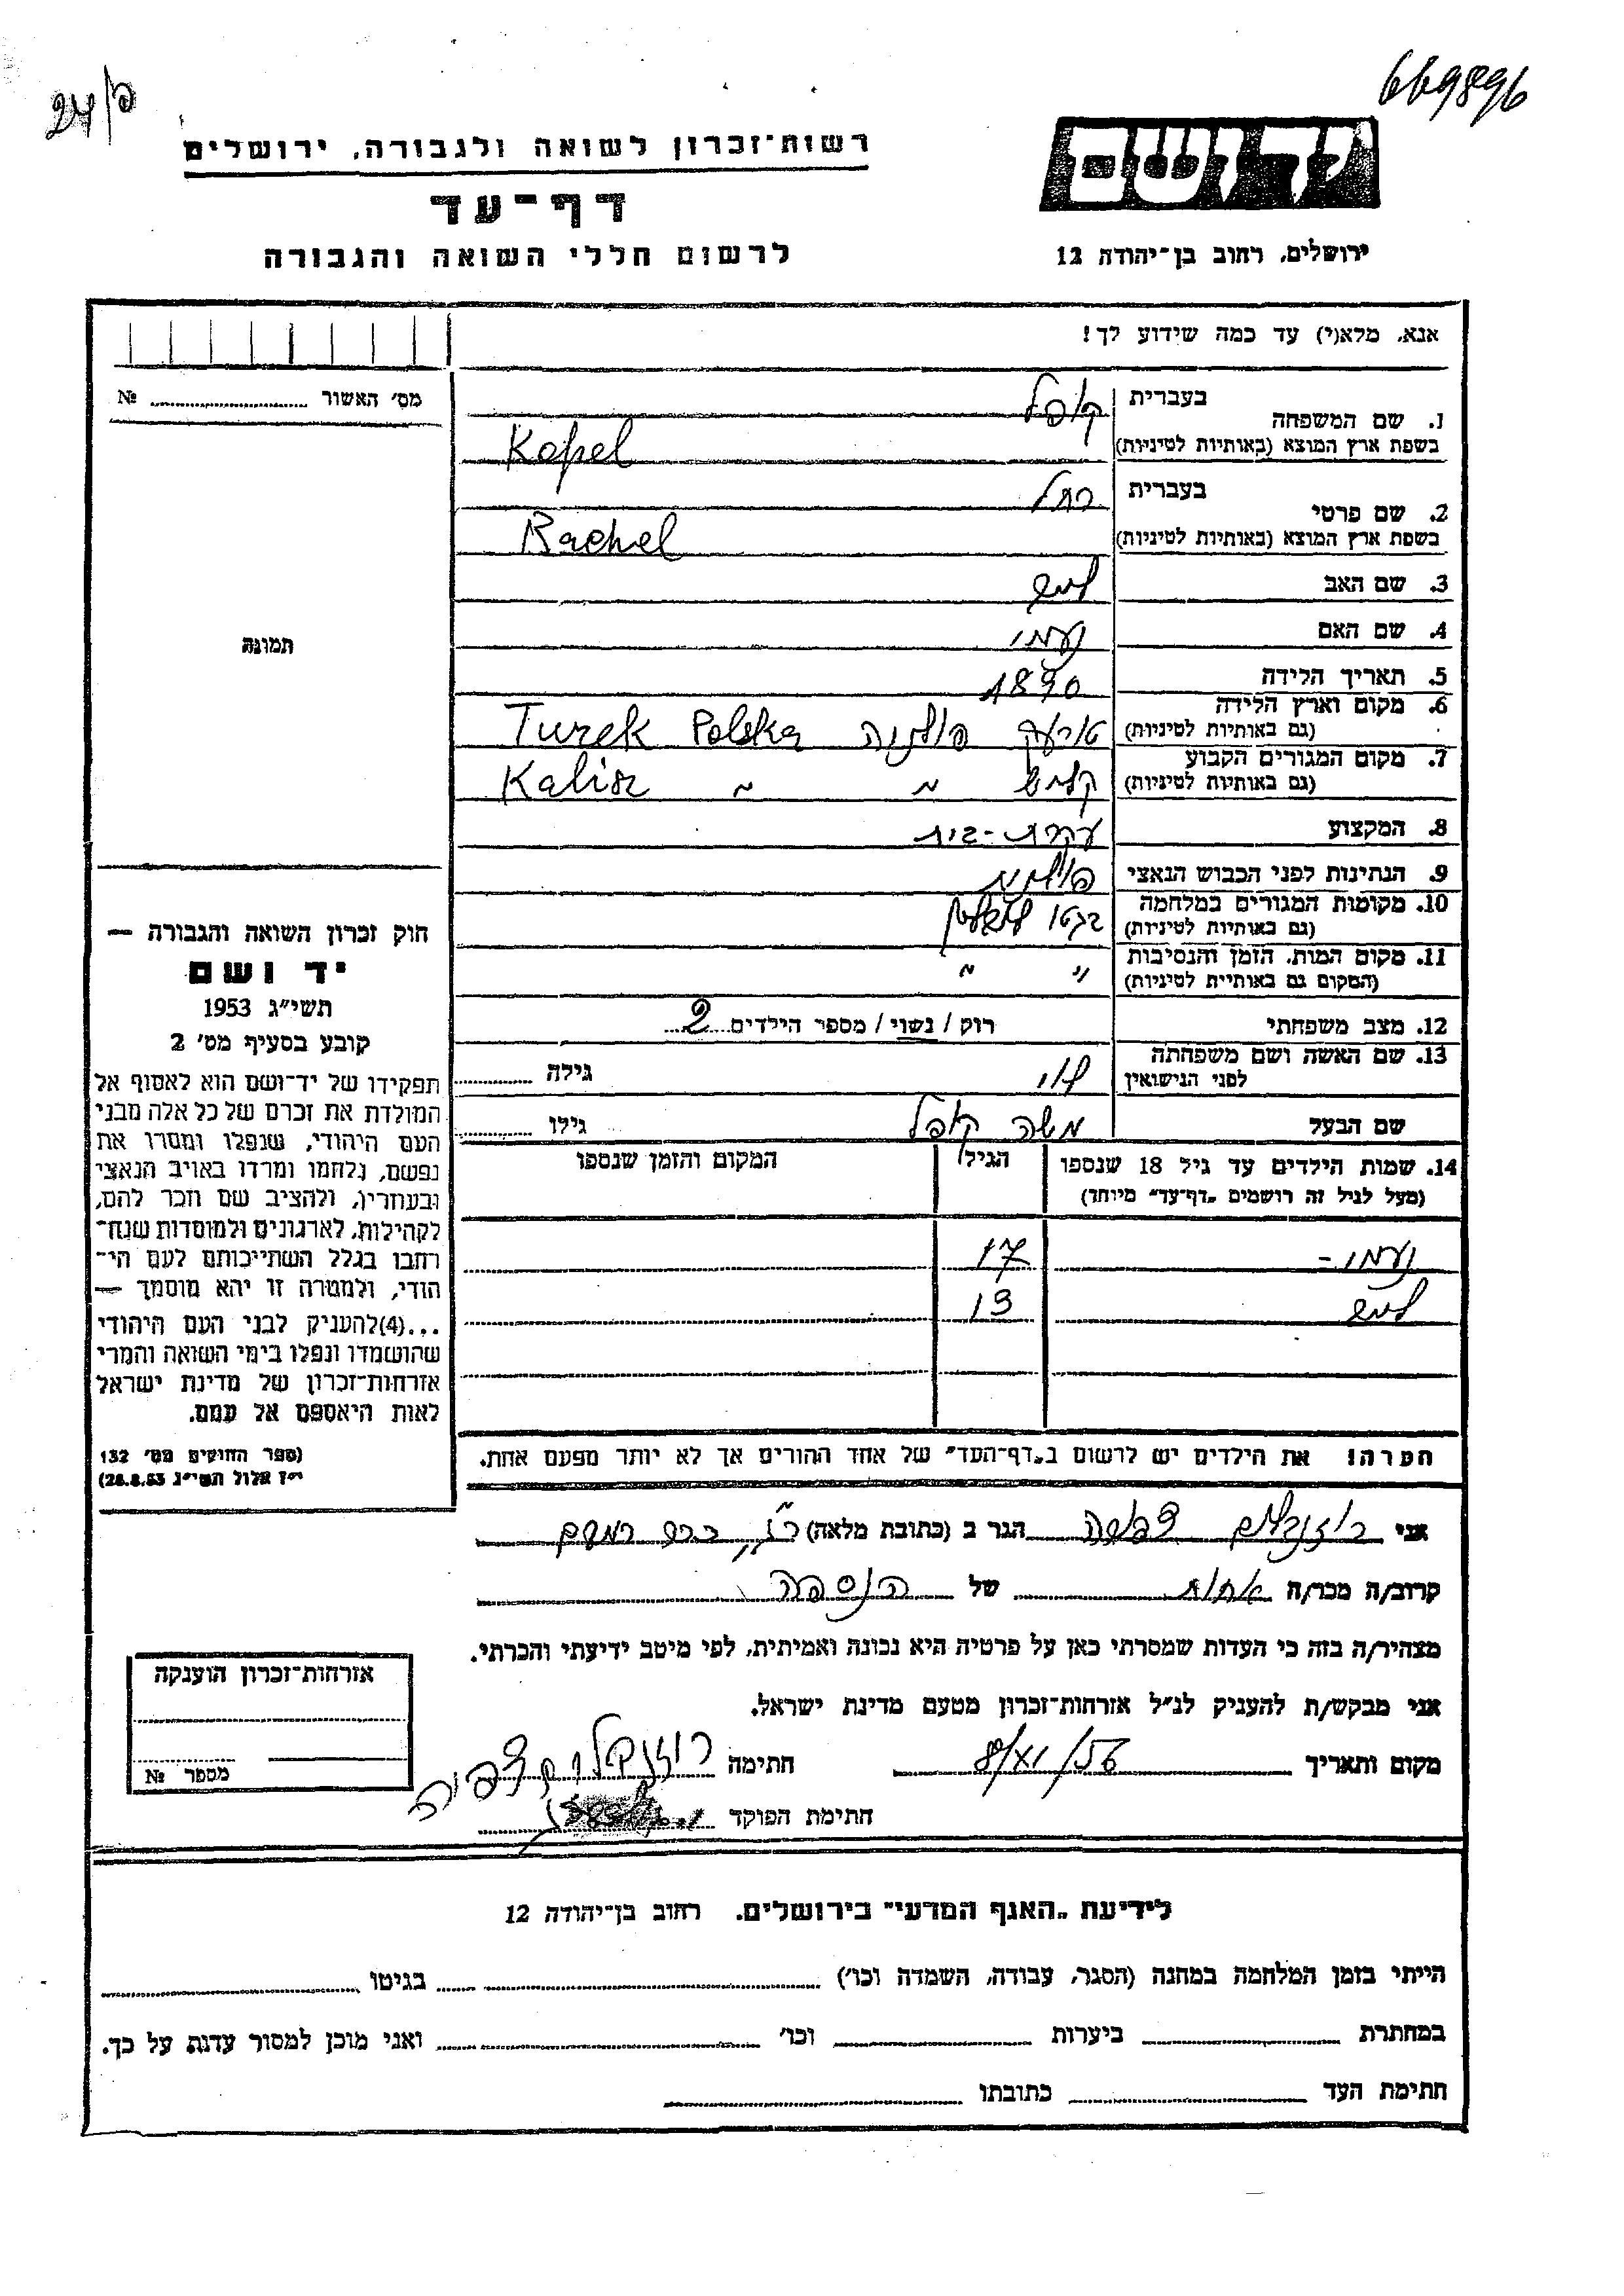 669896
24/פ
יד ושם
רשות־זכרון לשואה ולגבורה, ירושלים
דף־עד
לרשום חללי השואה והגבורה
ירושלים, רחוב בן־יהודה 12
אנא, מלא(י) עד כמה שידוע לך!
מס׳ האשור № 
1. שם המשפחה בעברית קופל
בשפת ארץ המוצא (באותיות לטיניות) Kopel
2. שם פרטי בעברית רחל
בשפת ארץ המוצא (באותיות לטיניות) Rachel
3. שם האב
4. שם האם נעמי
תמונה
5. תאריך הלידה 1890
6. מקום וארץ הלידה (גם באותיות לטיניות) טורעק פולניה Turek Polska
7. מקום המגורים הקבוע (גם באותיות לטיניות) קליש " " Kalisz
8. המקצוע עקרת-בית
9. הנתינות לפני הכבוש הנאצי פולנית
10. מקומות המגורים במלחמה (גם באותיות לטיניות) בגטו
11. מקום המות, הזמן והנסיבות (המקום גם באותיית לטיניות) " "
12. מצב משפחתי רוק/נשוי/ מספר הילדים 2
13. שם האשה ושם משפחתה לפני הנישואין לוי גילה
שם הבעל משה קופל גילו
14. שמות הילדים עד גיל 18 שנספו (מעל לגיל זה רושמים „דף־עד״ מיוחד) הגיל המקום והזמן שנספו
נעמי - 17
13
הערה! את הילדים יש לרשום ב„דף־העד״ של אחד ההורים אך לא יותר מפעם אחת.
חוק זכרון השואה והגבורה —
יד ושם
תשי״ג 1953
קובע בסעיף מס׳ 2
תפקידו של יד־ושם הוא לאסוף אל
המולדת את זכרם של כל אלה מבני
העם היהודי, שנפלו ומסרו את
נפשם, נלחמו ומרדו באויב הנאצי
ובעוזריו, ולהציב שם וזכר להם,
לקהילות, לארגונים ולמוסדות שנח־
רחבו בגלל השתייכותם לעם הי־
הודי, ולמטרה זו יהא מוסמך —
...(4)להעניק לבני העם היהודי
שהושמדו ונפלו בימי השואה והמרי
אזרחות־זכרון של מדינת ישראל
לאות היאספם אל עמם.
(ספר החוקים מס׳ 132
י״ז אלול תשי״ג 28.8.53)
אני הגר ב (כתובת מלאה)
קרוב/ה מכר/ה אחות של הנספה
מצהיר/ה בזה כי העדות שמסרתי כאן על פרטיה היא נכונה ואמיתית, לפי מיטב ידיעתי והכרתי.
אני מבקש/ת להעניק לנ״ל אזרחות־זכרון מטעם מדינת ישראל.
מקום ותאריך 8/XI/56 חתימה
חתימת הפוקד
אזרחות־זכרון הוענקה
מספר №
לידיעת „האגף המדעי״ בירושלים. רחוב בן־יהודה 12
הייתי בזמן המלחמה במחנה (הסגר, עבודה, השמדה וכו׳) בגיטו
במחתרת ביערות וכו׳ ואני מוכן למסור עדות על כך.
חתימת העד כתובתו